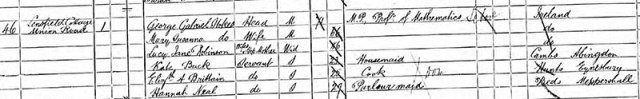 46 Lensfield Cottage 1 George Gabriel Stokes Head M M.P. Proffr. of Mathematics Ireland
Union Road Mary Susanna do Wife M do
Lucy Jane Robinson Mother Wid do
Kate Buck Servant S Housemaid Cambs Abington
Elizth A Brittain do S Cook Hunts Eynesbury
Hannah Neal do S Parlour maid Beds Meppershall